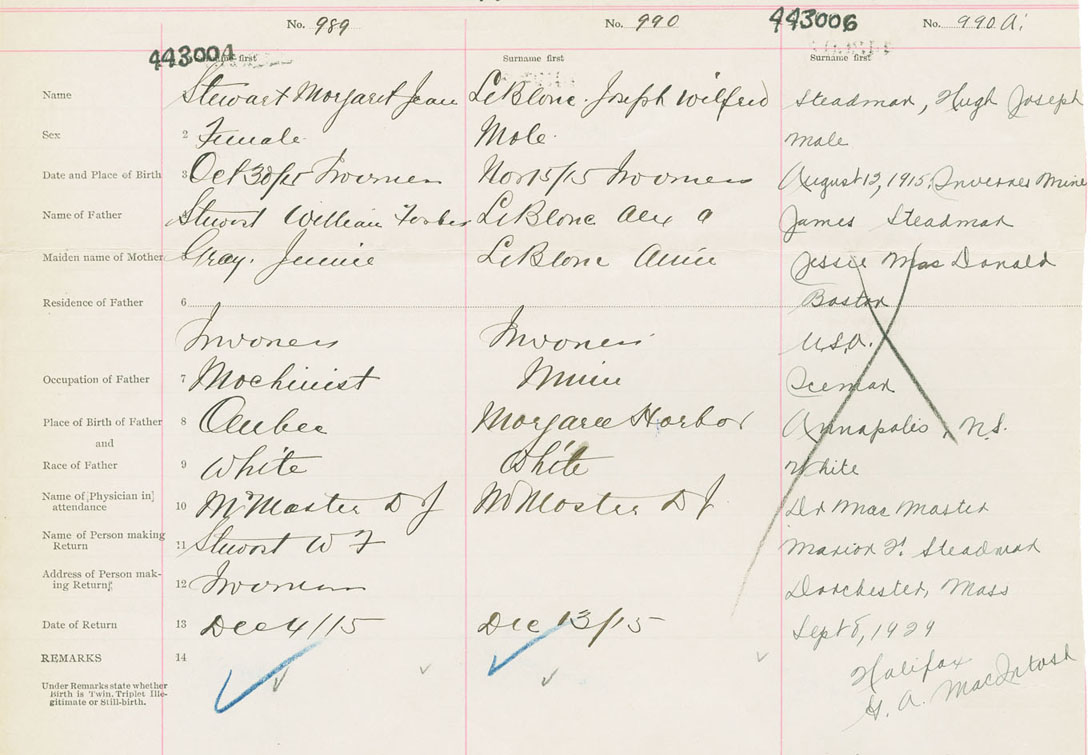 No. 989 No. 990 443006 No. 990 A.
443004
Surname first Surname first Surname first
Name Stewart Margaret Jean LeBlanc Joseph Wilfred Steadman, Hugh Joseph
Sex 2 Female Male Male
Date and Place of Birth 3 Oct 30/15 Inverness Nov 15/15 Inverness August 12, 1915, Inverness Mines
Name of Father Stewart William Forbes LeBlanc Alex A James Steadman
Maiden name of Mother Gray, Jennie LeBlanc Annie Jessie MacDonald
Residence of Father 6 Boston
Inverness Inverness U.S.A.
Occupation of Father 7 Machinist Miner Iceman
Place of Birth of Father 8 Quebec Margaree Harbor Annapolis, N.S.
and
Race of Father 9 White White White
Name of [Physician in]
attendance 10 McMaster D J McMaster D J Dr MacMaster
Name of Person making
Return 11 Stewart W F Marion F. Steadman
Address of Person mak-
ing Return 12 Inverness Dorchester, Mass
Date of Return 13 Dec 4/15 Dec 13/15 Sept 8, 1929
REMARKS 14
Halifax
G. A. MacIntosh
Under Remarks state whether
Birth is Twin, Triplet Ille-
gitimate or Still-birth.